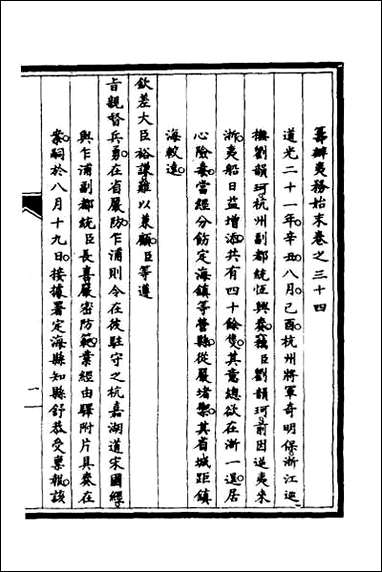 籌辦夷務始末卷之三十四
道光二十一年辛丑八月己酉杭州將軍奇明保浙江巡
撫劉韻珂杭州副都統恆興奏竊臣劉韻珂前因逆夷來
浙夷船日益增添共有四十餘隻其意總欲在浙一逞居
心險毒當經分飭定海鎮等營縣從嚴堵禦其省城距鎮
海較遠
欽差大臣裕謙難以兼顧臣等遵
旨親督兵勇在省嚴防乍浦則令在彼駐守之杭嘉湖道宋國經
與乍浦副都統臣長喜嚴密防範業經由驛附片具奏在
案嗣於八月十九日接據署定海縣知縣舒恭受稟報該
一